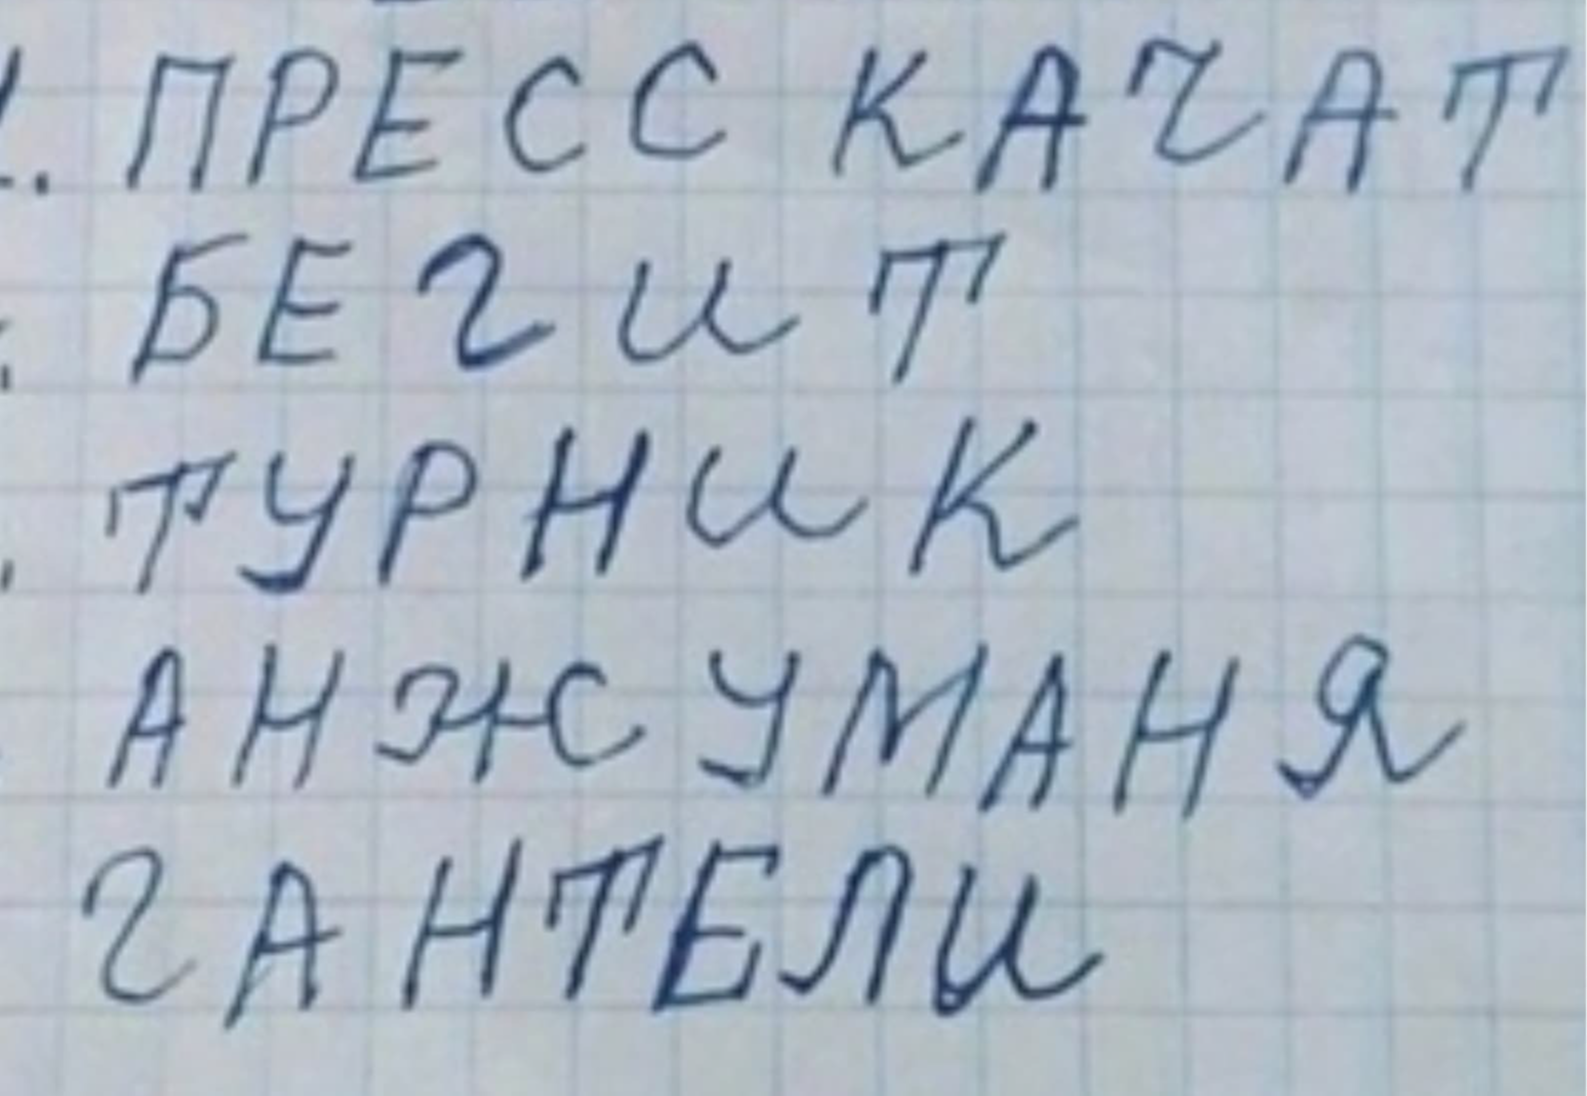 ПРЕСС КАЧАТ
БЕГИТ
ТУРНИК
АНЖУМАНЯ
ГАНТЕЛИ